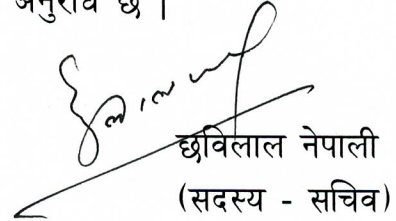 अनुरोध छ ।
छविलाल नेपाली
(सदस्य - सचिव)